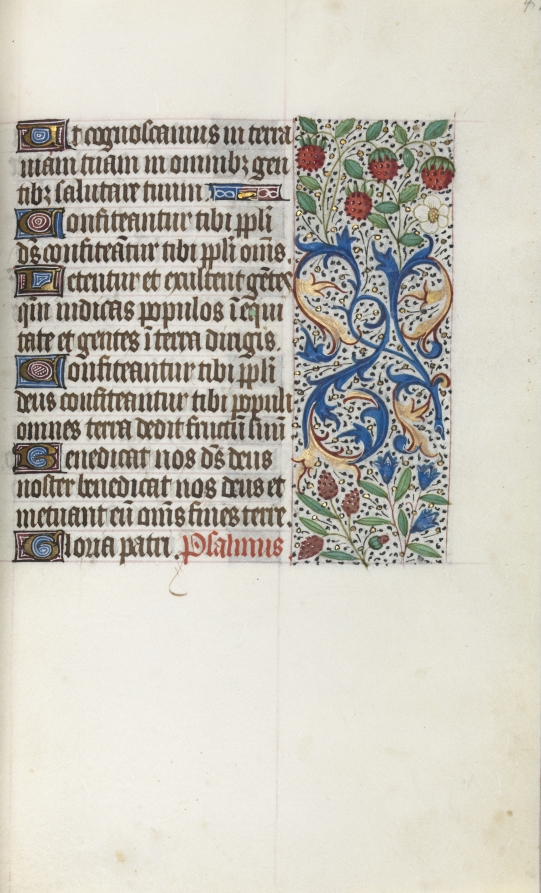 Ut cognoscamus in terra
uiam tuam in omnibꝫ gen
tibꝫ salutare tuum
Confiteantur tibi ppl̄i
ds̄ confiteātur tibi ppl̄i om̄s.
Letentur et exultent gētes
qm̄ iudicas populos ī equi
tate et gentes ī terra dirigis.
Confiteantur tibi ppl̄i
deus confiteantur tibi populi
omnes terra dedit fructū suū
Benedicat nos ds̄ deus
noster benedicat nos deus et
metuant eū om̄s fines terre.
Gloria patri. Psalmus